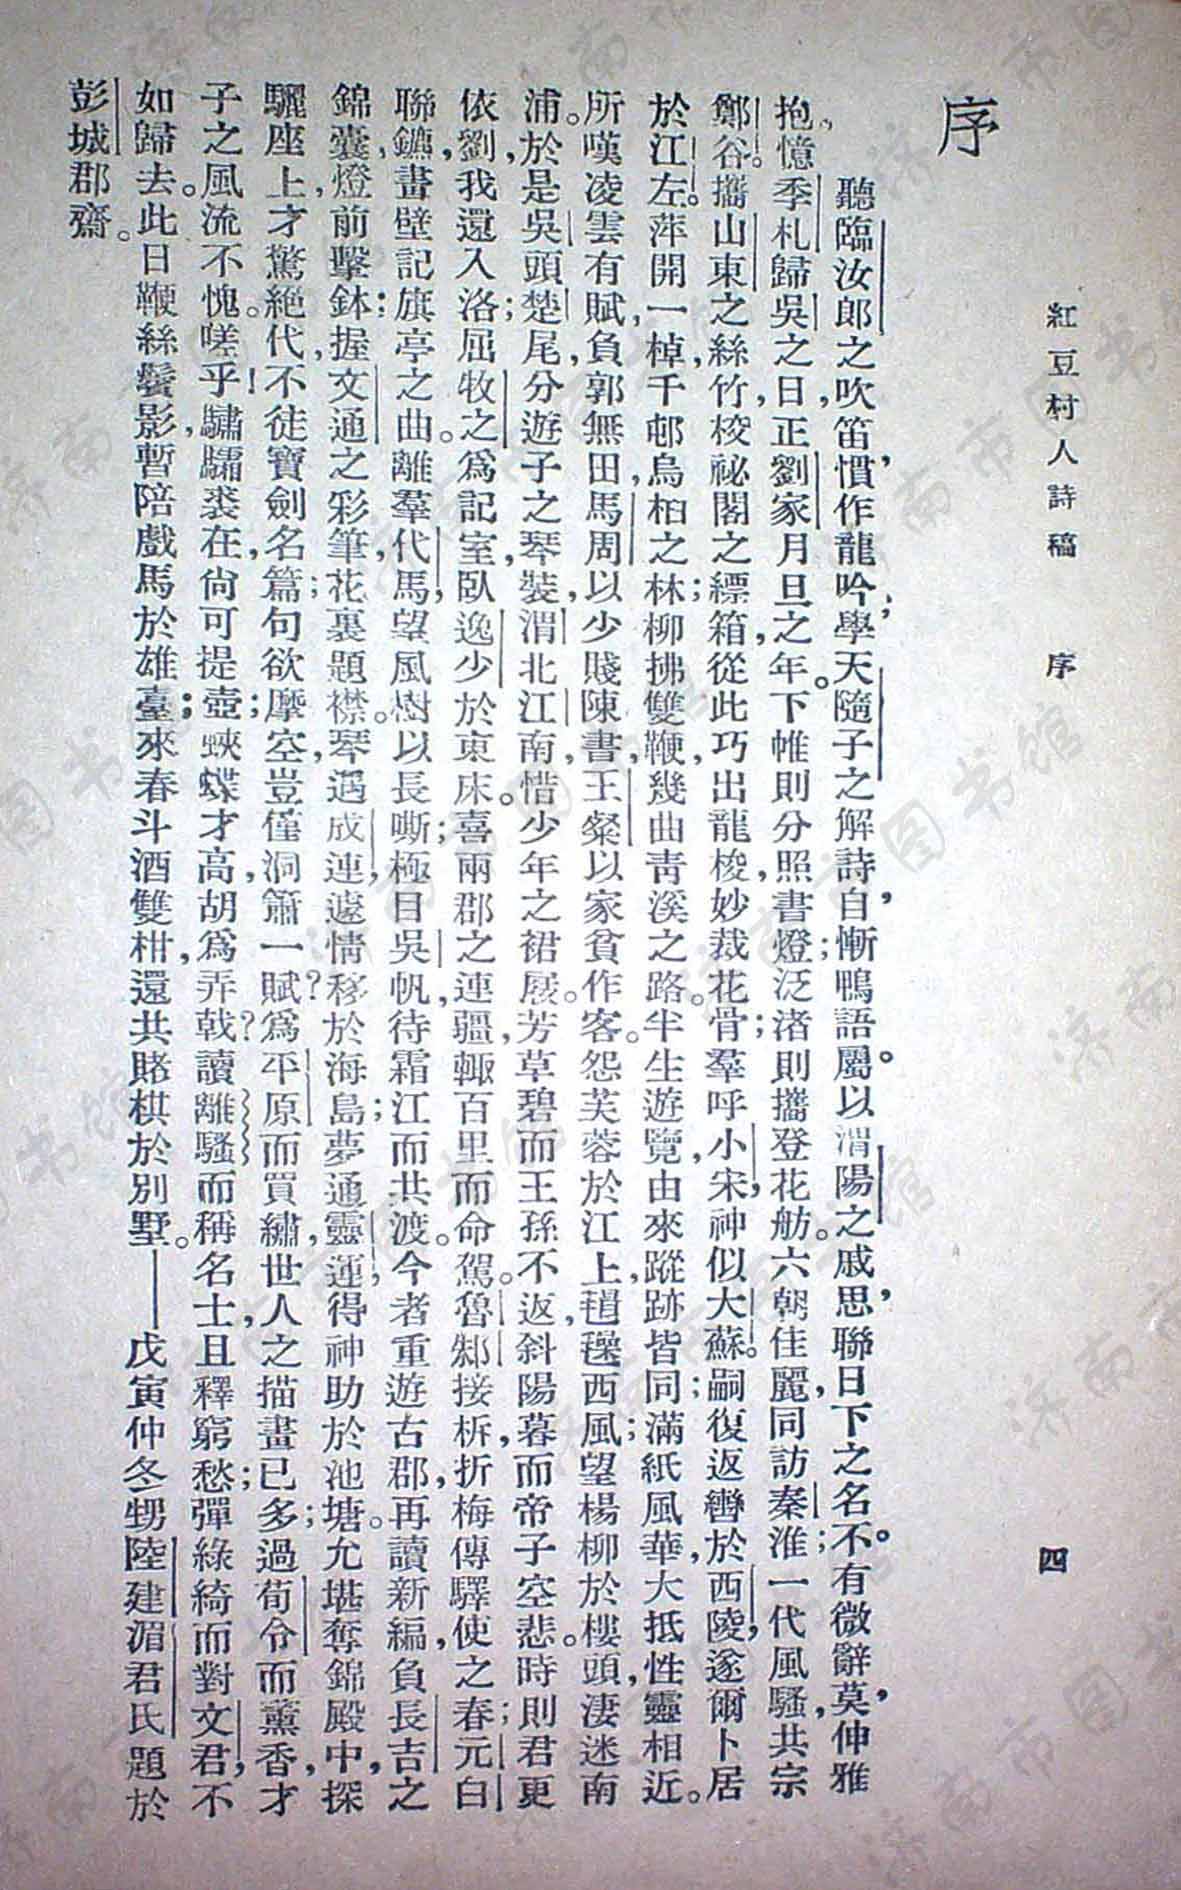 紅豆村人詩稿　序　四
序
聽臨汝郎之吹笛，慣作龍吟；學天隨子之解詩，自慚鴨語。屬以渭陽之戚，思聯日下之名。不有微辭，莫伸雅
抱。憶季札歸吳之日，正劉家月旦之年。下帷則分照書燈；泛渚則攜登花舫。六朝佳麗，同訪秦淮；一代風騷，共宗
鄭谷。攜山東之絲竹，校祕閣之縹箱，從此巧出龍梭，妙裁花骨；羣呼小宋，神似大蘇。嗣復返轡於西陵，遂爾卜居
於江左。萍開一棹，千邨烏桕之林；柳拂雙鞭，幾曲靑溪之路。半生遊覽，由來蹤跡皆同；滿紙風華，大抵性靈相近。
所嘆凌雲有賦，負郭無田，馬周以少賤陳書，王粲以家貧作客。怨芙蓉於江上，氆氌西風；望楊柳於樓頭，淒迷南
浦。於是吳頭楚尾，分遊子之琴裝，渭北江南，惜少年之裙屐。芳草碧而王孫不返，斜陽暮而帝子空悲。時則君更
依劉，我還入洛；屈牧之爲記室，臥逸少於東床。喜兩郡之連疆，輙百里而命駕。魯邾接柝，折梅傳驛使之春；元白
聯鑣，畫壁記旗亭之曲。離羣代馬，望風樹以長嘶；極目吳帆，待霜江而共渡。今者重遊古郡，再讀新編，負長吉之
錦囊，燈前擊鉢；握文通之彩筆，花裏題襟。琴遇成連，遽情移於海島；夢通靈運，得神助於池塘。允堪奪錦殿中，探
驪座上，才驚絕代，不徒寶劍名篇；句欲摩空，豈僅洞簫一賦？爲平原而買繡，世人之描畫已多；過荀令而薰香，才
子之風流不愧。嗟乎！驌驦裘在，尙可提壺；蛺蝶才高，胡爲弄戟？讀離騷而稱名士，且釋窮愁；彈綠綺而對文君，不
如歸去。此日鞭絲鬢影，暫陪戲馬於雄臺；來春斗酒雙柑，還共賭棋於別墅。——戊寅仲冬甥陸建湄君氏題於
彭城郡齋。